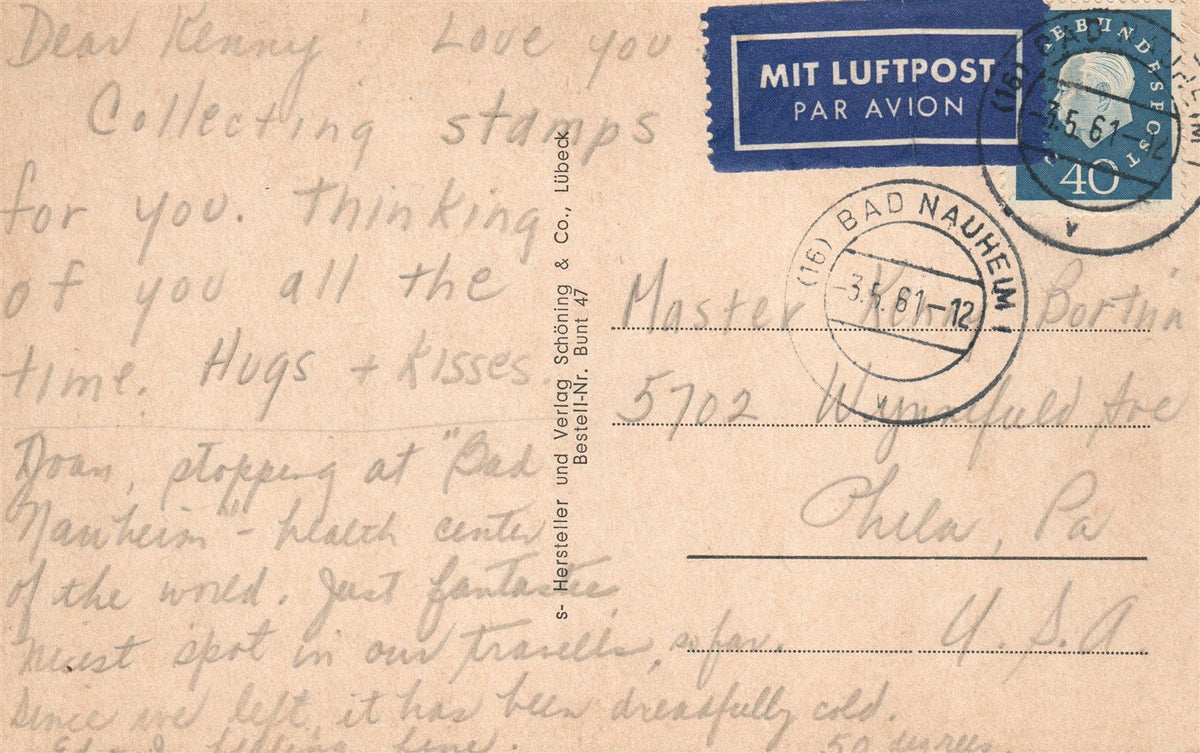 Dear Kenny Love you
Collecting stamps
for you. Thinking
of you all the
time. Hugs + Kisses.
stopping at "Bad
Nauheim" - health center
of the world. Just fantastic
nicest spot in our travells, so far.
Since we left, it has been dreadfully cold.
feeling fine. 50 degrees
s- Hersteller und Verlag Schöning & Co., Lübeck
Bestell-Nr. Bunt 47
MIT LUFTPOST
PAR AVION
DEUTSCHE BUNDESPOST
40
(16) BAD NAUHEIM 1
-3.5.61-12
(16) BAD NAUHEIM 1
-3.5.61-12
Master Kenny Bortnin
5702 Wynnefield Ave
Phila, Pa
U.S.A